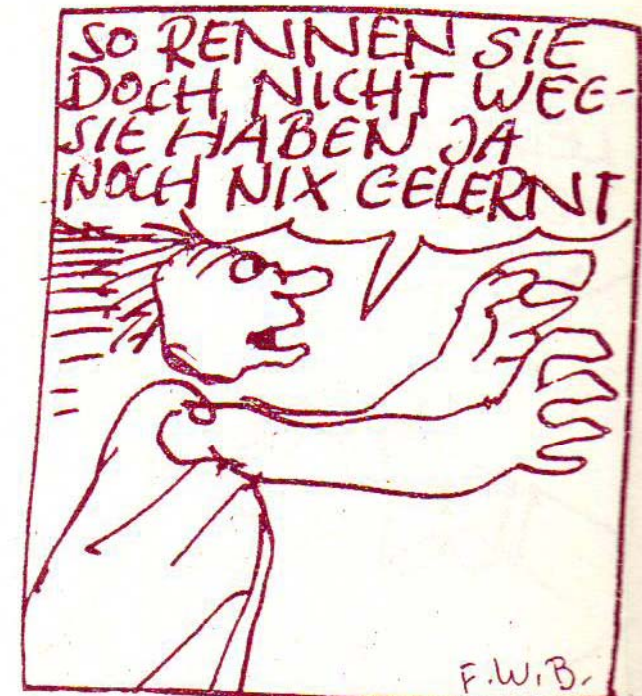 SO RENNEN SIE
DOCH NICHT WEG-
SIE HABEN JA
NOCH NIX GELERNT
F.W.B.